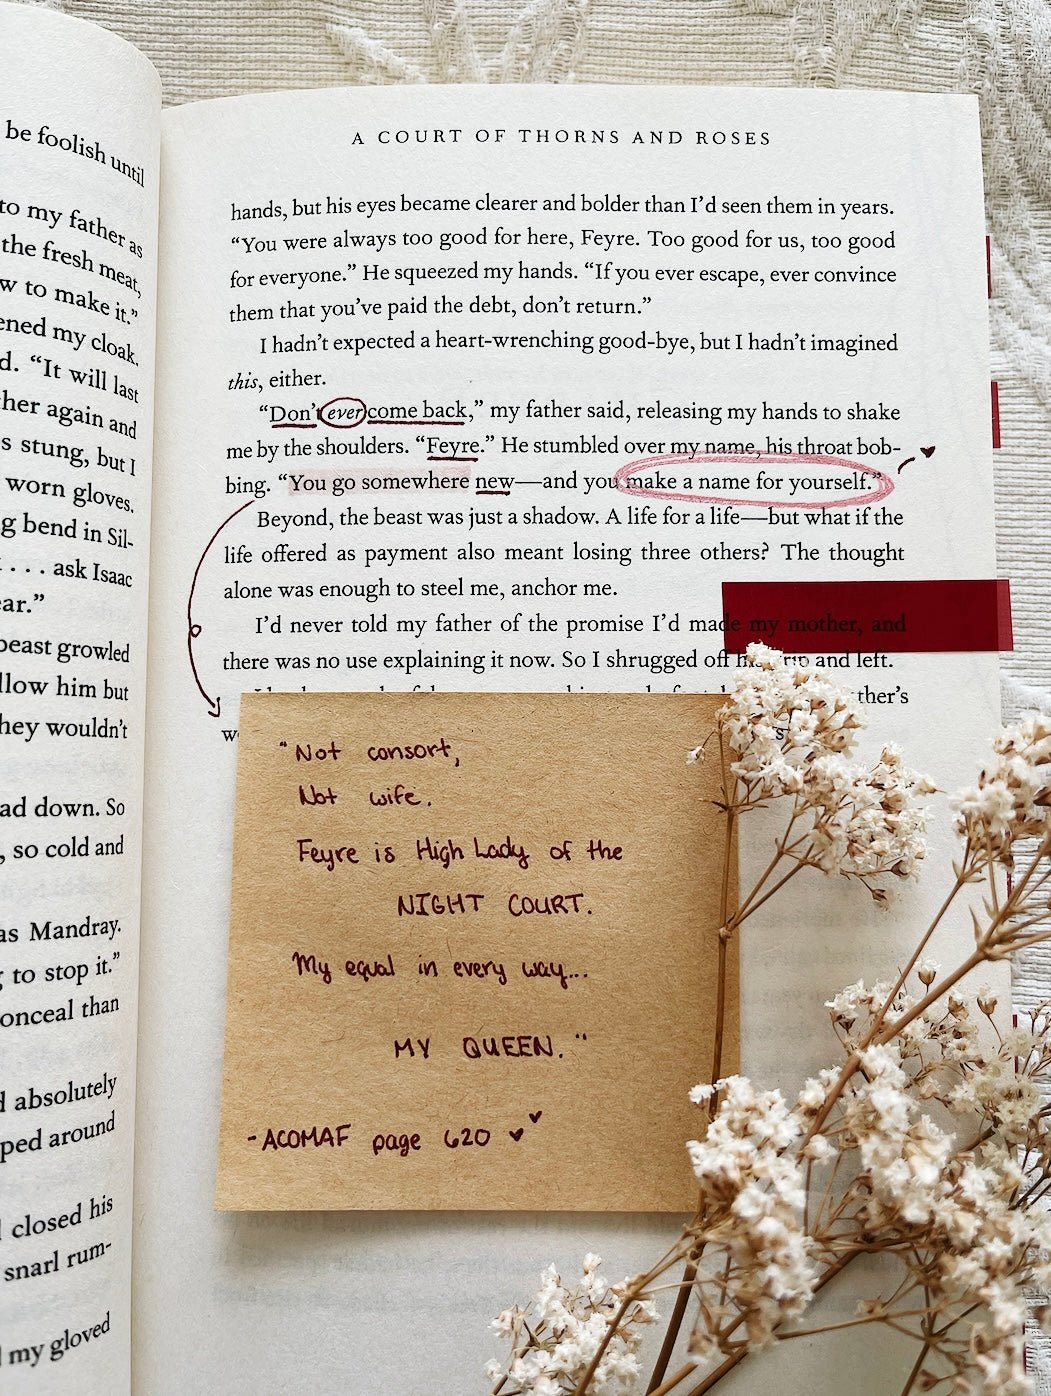 be foolish until
to my father as
the fresh meat,
w to make it.”
ened my cloak.
d. “It will last
her again and
s stung, but I
worn gloves.
g bend in Sil-
. . . ask Isaac
ear.”
beast growled
llow him but
hey wouldn’t
ad down. So
, so cold and
as Mandray.
to stop it.”
onceal than
absolutely
ped around
closed his
snarl rum-
my gloved
A COURT OF THORNS AND ROSES
hands, but his eyes became clearer and bolder than I’d seen them in years.
“You were always too good for here, Feyre. Too good for us, too good
for everyone.” He squeezed my hands. “If you ever escape, ever convince
them that you’ve paid the debt, don’t return.”
I hadn’t expected a heart-wrenching good-bye, but I hadn’t imagined
this, either.
“Don’t ever come back,” my father said, releasing my hands to shake
me by the shoulders. “Feyre.” He stumbled over my name, his throat bob-
bing. “You go somewhere new—and you make a name for yourself.”
Beyond, the beast was just a shadow. A life for a life—but what if the
life offered as payment also meant losing three others? The thought
alone was enough to steel me, anchor me.
I’d never told my father of the promise I’d made my mother, and
there was no use explaining it now. So I shrugged off his grip and left.
ther’s
"Not consort,
Not wife.
Feyre is High Lady of the
NIGHT COURT.
My equal in every way...
MY QUEEN."
-ACOMAF page 620